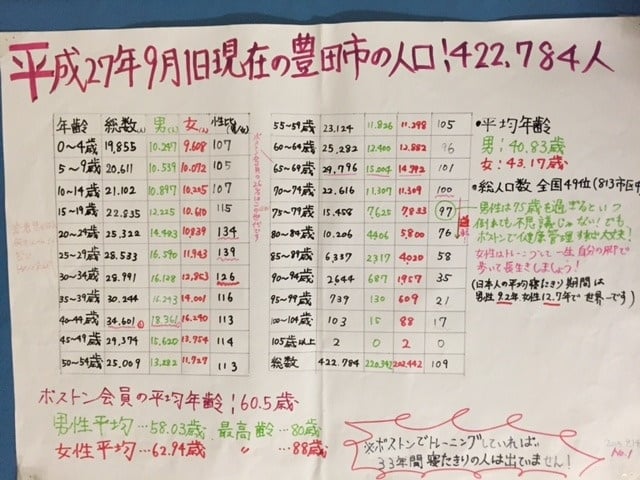 平成27年9月1日現在の豊田市の人口!422,784人
年齢 総数(人) 男(人) 女(人) 性比(男/女)
0~4歳 19,855 10,247 9,608 107
5~9歳 20,611 10,539 10,072 105
10~14歳 21,102 10,897 10,205 107
15~19歳 22,835 12,225 10,610 115
20~24歳 25,322 14,483 10,839 134
25~29歳 28,533 16,590 11,943 139
30~34歳 28,991 16,138 12,853 126
35~39歳 30,244 16,243 14,001 116
40~44歳 34,601 18,361 16,240 113
45~49歳 29,374 15,620 13,754 114
50~54歳 25,009 13,282 11,727 113
55~59歳 23,124 11,826 11,298 105
60~64歳 25,282 12,400 12,882 96
65~69歳 29,796 15,004 14,792 101
70~74歳 22,616 11,307 11,309 100
75~79歳 15,458 7625 7833 97
80~84歳 10,206 4406 5,800 76
85~89歳 6,337 2317 4020 58
90~94歳 2644 687 1957 35
95~99歳 739 130 609 21
100~104歳 103 15 88 17
105歳以上 2 0 2 0
総数 422,784 220,342 202,442 109
•平均年齢
男:40.83歳
女:43.17歳
•総人口数 全国49位(813市区中
男性は75歳を過ぎるといつ
倒れても不思議じゃない!でも
ボストンで健康管理すれば大丈夫!
女性はトレーニングして一生自分の脚で
歩いて長生きしましょう!
(日本人の平均寝たきり期間は
男性9.2年 女性12.7年で世界一です)
ボストン会員の平均年齢!60.5歳
男性平均…58.03歳 最高齢…80歳
女性平均…62.94歳 〃 …88歳
※ボストンでトレーニングしていれば、
33年間寝たきりの人は出ていません!
No.1